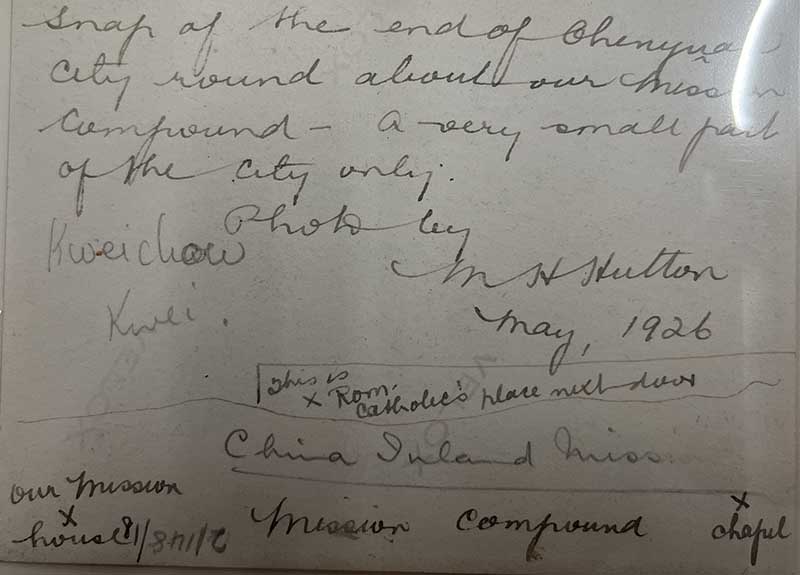 Snap of the end of Chenyuan
city round about our Mission
Compound - A very small part
of the city only.
Photo by
Kweichow
M H Hutton
Kwei.
May, 1926
This is
x Rom.
Catholic's place next door
China Inland Miss
our Mission
x
house
Mission Compound
x
chapel